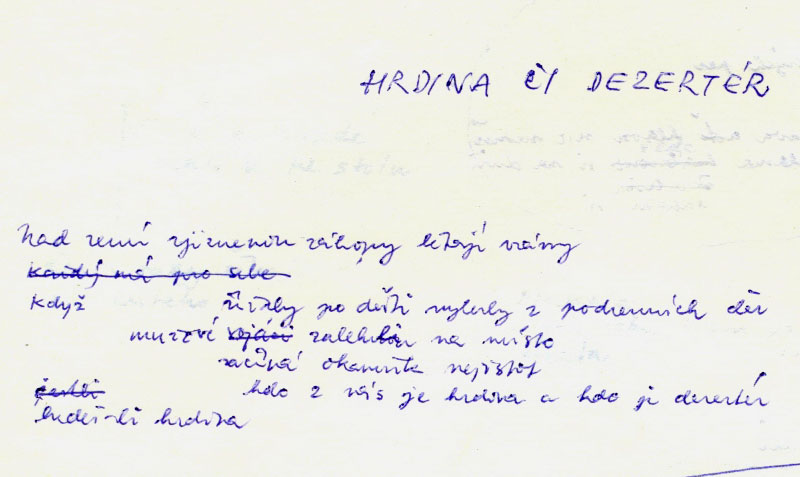 HRDINA ČI DEZERTÉR
Nad zemí zjizvenou zákopy létají vrány
každý má pro sebe
Když žížaly po dešti vylezly z podzemních děr
mužové vojáci zalehli na místo
začíná okamžik nejistot
kdo z nás je hrdina a kdo je dezertér
jestli
budeš-li hrdina